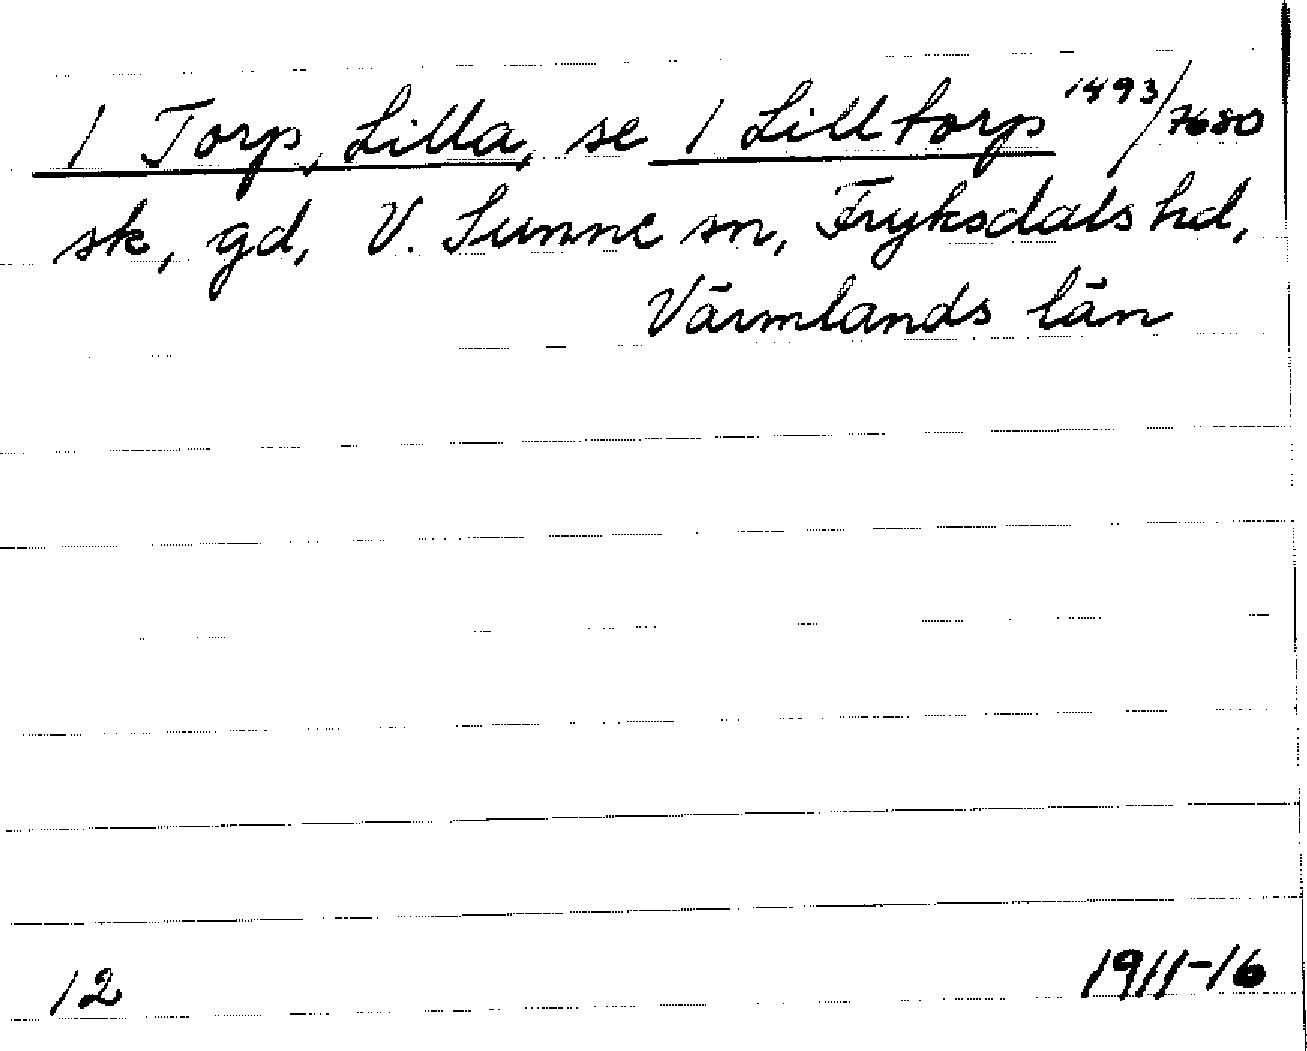 1 Torp, Lilla, se 1 Lilltorp 1493/7680
sk, gd, V. Sunne sn, Fryksdals hd,
Värmlands län
12
1911-16